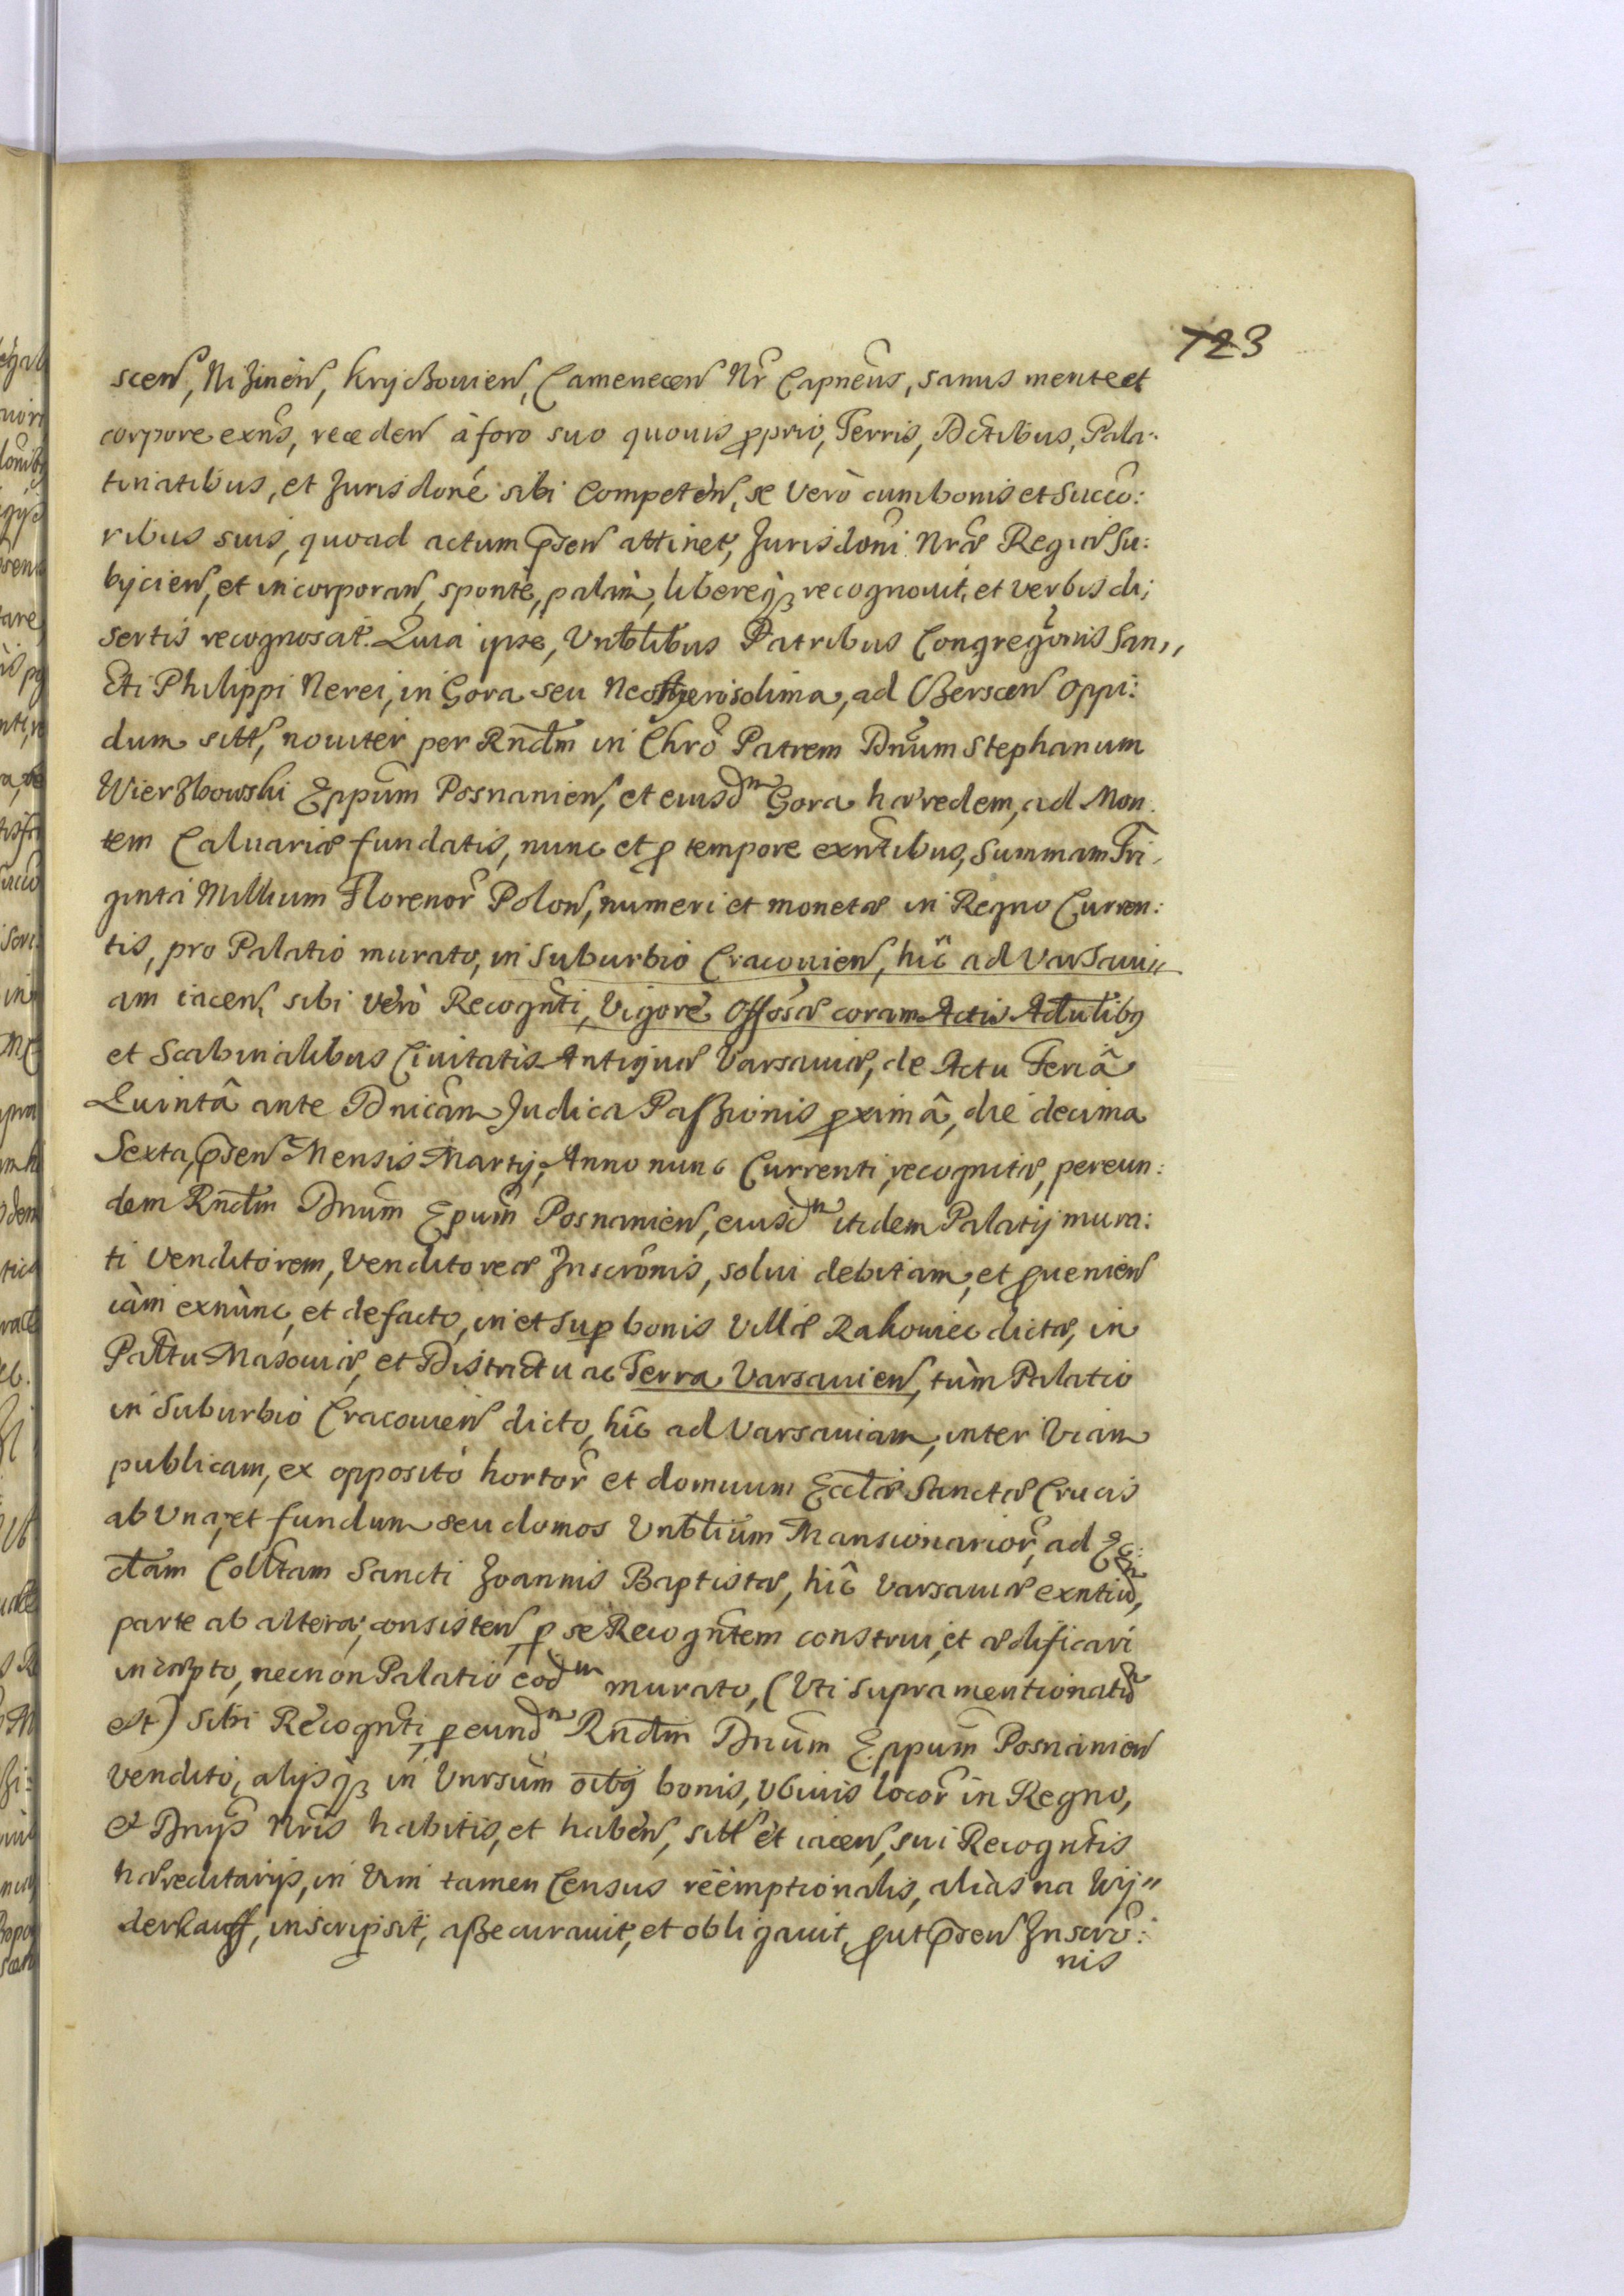 723
scen, Nizinen, Kryczouien, Camenecen Nr Capneus, sanus mente et
corpore exns, receden à foro suo quouis pprio, Terris, Dctibus, Pala:
tinatibus, et Jurisdone sibi Competen, se verò cum bonis et Succo:
ribus suis, quoad actum psen attinet, Jurisdoni Nræ Regiæ Su:
bijcien, et incorporan, sponte, palam, libereq3 recognouit, et verbis di:
sertis recognoscit. Quia ipse, Vnblibus Patribus Congregonis San,,
cti Philippi Nerei, in Gora seu Neo Hyerosolima, ad Czerscen Oppi:
dum sitt, nouiter per Rndm in Chro Patrem Dnum Stephanum
Wierzbowski Eppum Posnanien, et eiusdm Gora hæredem, ad Mon
tem Caluariæ fundatis, nunc et p tempore exntibus, Summam Tri,
ginta Millium Florenor Polon, numeri et monetæ in Regno Curren:
tis, pro Palatio murato, in Suburbio Cracouien, hic ad Varsaui,,
am iacen, sibi verò Recognti, Vigore Offosæ coram Actis Actulibq
et Scabinalibus Ciuitatis Antiquæ Varsauiæ, de Actu Feriâ
Quintâ ante Dnicam Judica Paszionis pximâ, die decima
Sexta, psen Mensis Martij, Anno nunc Currenti, recognitæ, per eun:
dem Rndm Dnum Epum Posnanien, eiusdm itidem Palatij mura:
ti Venditorem, Venditoreæ Inscronis, solui debitam, et puenien
iàm exnùnc, et de facto, in et Sup bonis Villæ Rakowiec dictæ, in
Palttu Masouiæ, et Districtu ac Terra Varsauien, tùm Palatio
in Suburbio Cracouien dicto, hic ad Varsauiam, inter Viam
publicam, ex opposito hortor et domuum Eccliæ Sanctæ Crucis
ab Vna, et fundum seu domos Vnblium Mansionarior, ad Ec:
clam Colltam Sancti Joannis Baptistæ, hic Varsauiæ exntium,
parte ab altera, consisten, p se Recogntem construi, et ædificari
incæpto, necnon Palatio eodm murato, (Vti Supra mentionatum
est) Sibi Recognti, p eundm Rndm Dnum Eppum Posnanien
Vendito, alijsq3 in Vnrsum oibq bonis, Vbiuis locor in Regno,
et Dnijs Nris habitis, et haben, sitt et iacen, sui Recogntis
hæreditarijs, in Vim tamen Census reemptionalis, aliàs na Wij,,
derkauff, inscripsit, aszecurauit, et obligauit, put psen Inscro:
nis